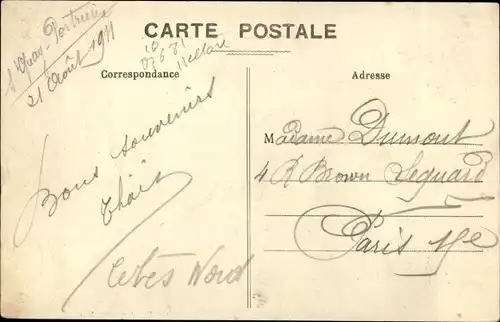 CARTE POSTALE
Correspondance
Adresse
St Quay-Portrieux
21 Août 1911
Bons souvenirs
Madame Dumont
4 R Brown Sequard
Paris 15e
Côtes Nord